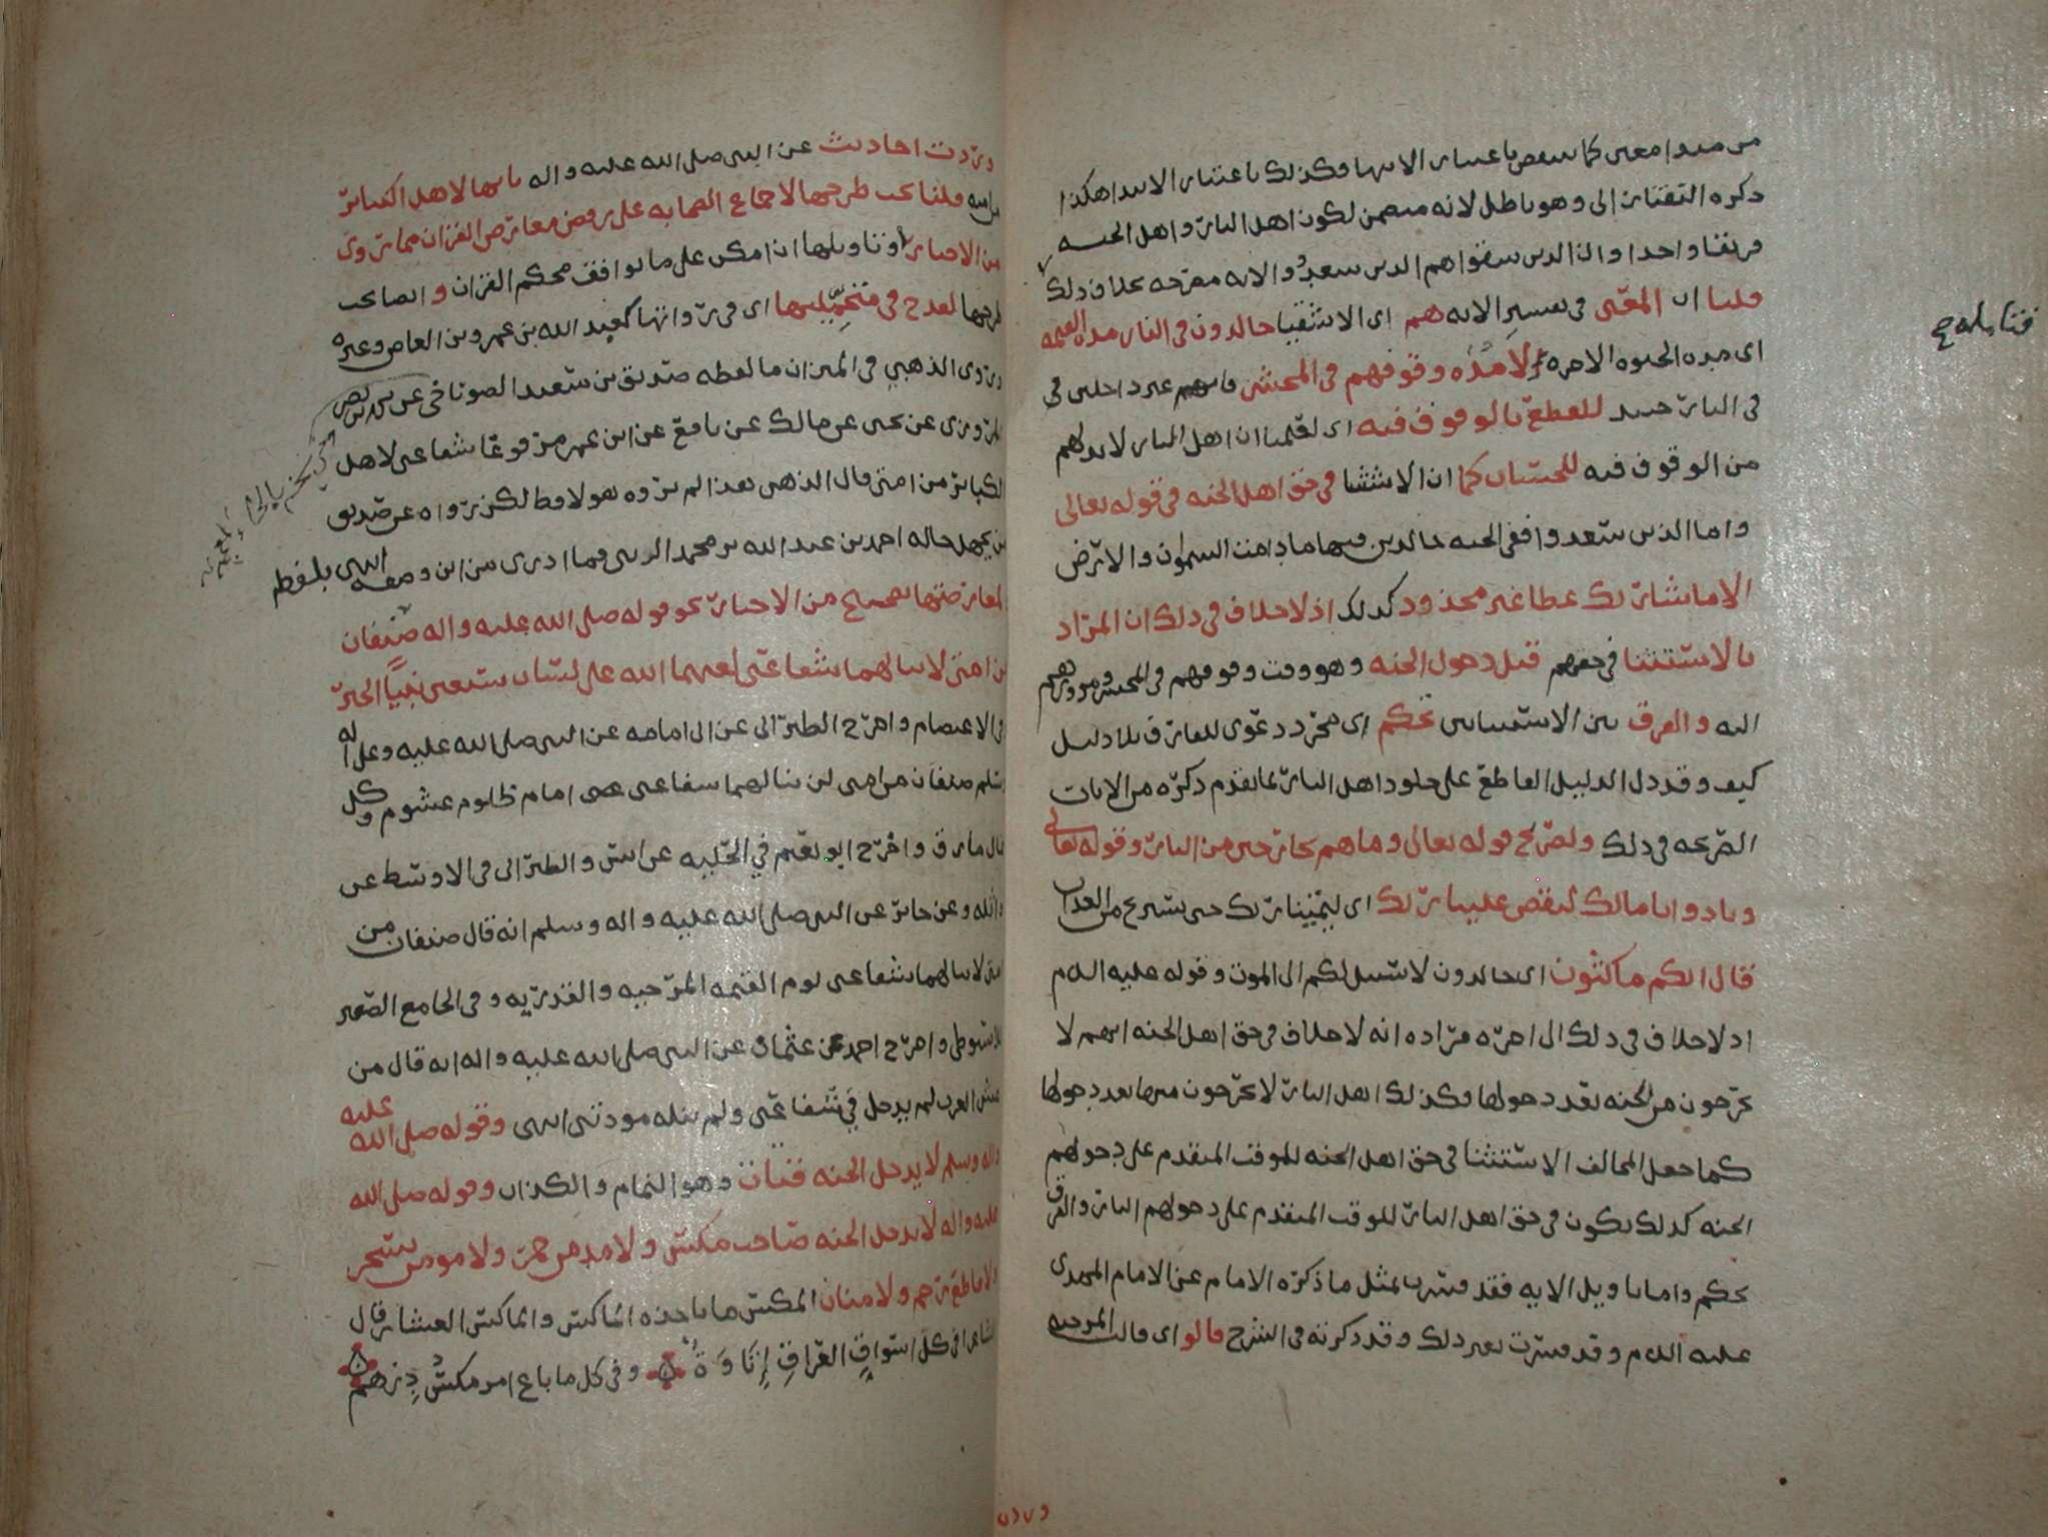 من مبدا معين كما ينقص باعتبار الانتها وكذلك باعتبار الابتدا هكذا
ذكره التفتازاني وهو باطل لانه متضمن لكون اهل النار واهل الجنه
فريقا واحدا وان الذين شقوا هم الذين سعدوا والايه مصرحه بخلاف ذلك
قلنا ان المعنى في تفسير الايه هم اي الاشقيا خالدون في النار مده القيمه
فتا بله ح
اي مده الحيوه الاخره الا مده وقوفهم في المحشر فانهم غير داخلين في
في النار حينيد للقطع بالوقوف فيه اي لعلمنا ان اهل النار لابد لهم
من الوقوف فيه للحساب كما ان الاستثنا في حق اهل الجنه في قوله تعالى
واما الذين سعدوا ففي الجنه خالدين فيها ما دامت السموات والارض
الا ما شا ربك عطا غير مجذوذ كذلك اذ لا خلاف في ذلك ان المراد
بالاستثنا في حقهم قبل دخول الجنه وهو وقت وقوفهم في المحشر ومرورهم
اليه والفرق بين الاستثنايين تحكم اي مجرد دعوى للفارق بلا دليل
كيف وقد دل الدليل القاطع على خلود اهل النار بما تقدم ذكره من الايات
الصريحه في ذلك ولصريح قوله تعالى وما هم بخارجين من النار وقوله تعالى
ونادوا يا مالك ليقض علينا ربك اي ليميتنا ربك حتى نستريح من العذاب
قال انكم ماكثون اي خالدون لا سبيل لكم الى الموت وقوله عليه السلم
اذ لا خلاف في ذلك الى اخره مراده انه لا خلاف في حق اهل الجنه انهم لا
يخرجون من الجنه بعد دخولها وكذلك اهل النار لا يخرجون منها بعد دخولها
كما جعل المخالف الاستثنا في حق اهل الجنه للوقت المتقدم على دخولهم
الجنه كذلك يكون في حق اهل النار للوقت المتقدم على دخولهم النار والفرق
تحكم واما تاويل الايه فقد فسرت بمثل ما ذكره الامام عن الامام المهدي
عليه السلم وقد فسرت بغير ذلك وقد ذكرته في الشرح قالوا اي قالت المرجيه
وردت
وردت احاديث عن النبي صلى الله عليه واله بانها لاهل الكباير
من امته قلنا يجب طرحها لاجماع الصحابه على رفض معارض القران مما روي
من الاخبار او تاويلها ان امكن على ما يوافق محكم القران و ايضا يجب
طرحها لقدح في متحمليها اي في رواتها كعبد الله بن عمرو بن العاص وغيره
وروى الذهبي في الميزان ما لفظه صديق بن سعيد الصوناخي عن محمد بن نصر
المروزي عن يحيى عن مالك عن نافع عن ابن عمر مرفوعا شفاعتي لاهل
الكباير من امتي قال الذهبي هذا لم يروه هولا قط لكن رواه عن صديق
من يجهل حاله احمد بن عبد الله بن محمد الزينبي فما ادري من اين وضعه انتهى بلفظه
لمعارضتها لصحيح من الاخبار نحو قوله صلى الله عليه واله صنفان
من امتي لا تنالهما شفاعتي لعنهما الله على لسان سبعين نبيا الخبر
في الاعتصام واخرج الطبراني عن ابي امامه عن النبي صلى الله عليه وعلى اله
وسلم صنفان من امتي لن تنالهما شفاعتي امام ظلوم غشوم وكل
غال مارق واخرج ابو نعيم في الحليه عن انس والطبراني في الاوسط عن
واثله وعن جابر عن النبي صلى الله عليه واله وسلم انه قال صنفان من
امتي لا تنالهما شفاعتي يوم القيمه المرجيه والقدريه وفي الجامع الصغير
للاسيوطي واخرج احمد عن عثمان عن النبي صلى الله عليه واله انه قال من
غش العرب لم يدخل في شفاعتي ولم تنله مودتي انتهى وقوله صلى الله عليه
واله وسلم لا يدخل الجنه قتات وهو النمام والكذاب وقوله صلى الله
عليه واله لا يدخل الجنه صاحب مكس ولا مدمن خمر ولا مومن بسحر
ولا قاطع رحم ولا منان المكس ما ياخذه الماكس والماكس العشار قال
الشاعر افي كل اسواق العراق إتاوة وفي كل ما باع امرؤ مكس درهم